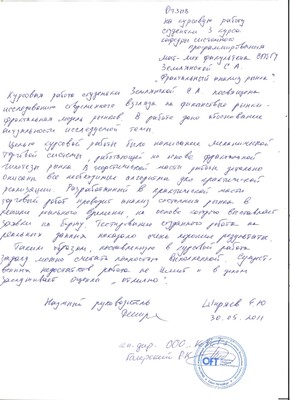 Отзыв
на курсовую работу
студентки 3 курса
кафедры системного
программирования
мат-мех факультета СПбГУ
Землянской С.А.
"Фрактальный анализ рынка".
Курсовая работа студентки Землянской С.А. посвящена
исследованию современного взгляда на финансовые рынки -
фрактальная модель рынков. В работе дано обоснование
актуальности исследуемой темы.
Целью курсовой работы было написание механической
торговой системы, работающей на основе фрактальной
гипотезы рынка. В теоретической части работы детально
описаны все необходимые алгоритмы для практической
реализации. Разработанный в практической части
торговый робот проводит анализ состояния рынка в
режиме реального времени, на основе которого выставляет
заявки на биржу. Тестирование созданного робота на
реальных данных показало очень хорошие результаты.
Таким образом, поставленную в курсовой работе
задачу можно считать полностью выполненной. Сущест-
венных недостатков работа не имеет и в целом
заслуживает оценки "отлично".
Научный руководитель Ширяев Е.Ю
30.05.2011
ген. дир. ООО